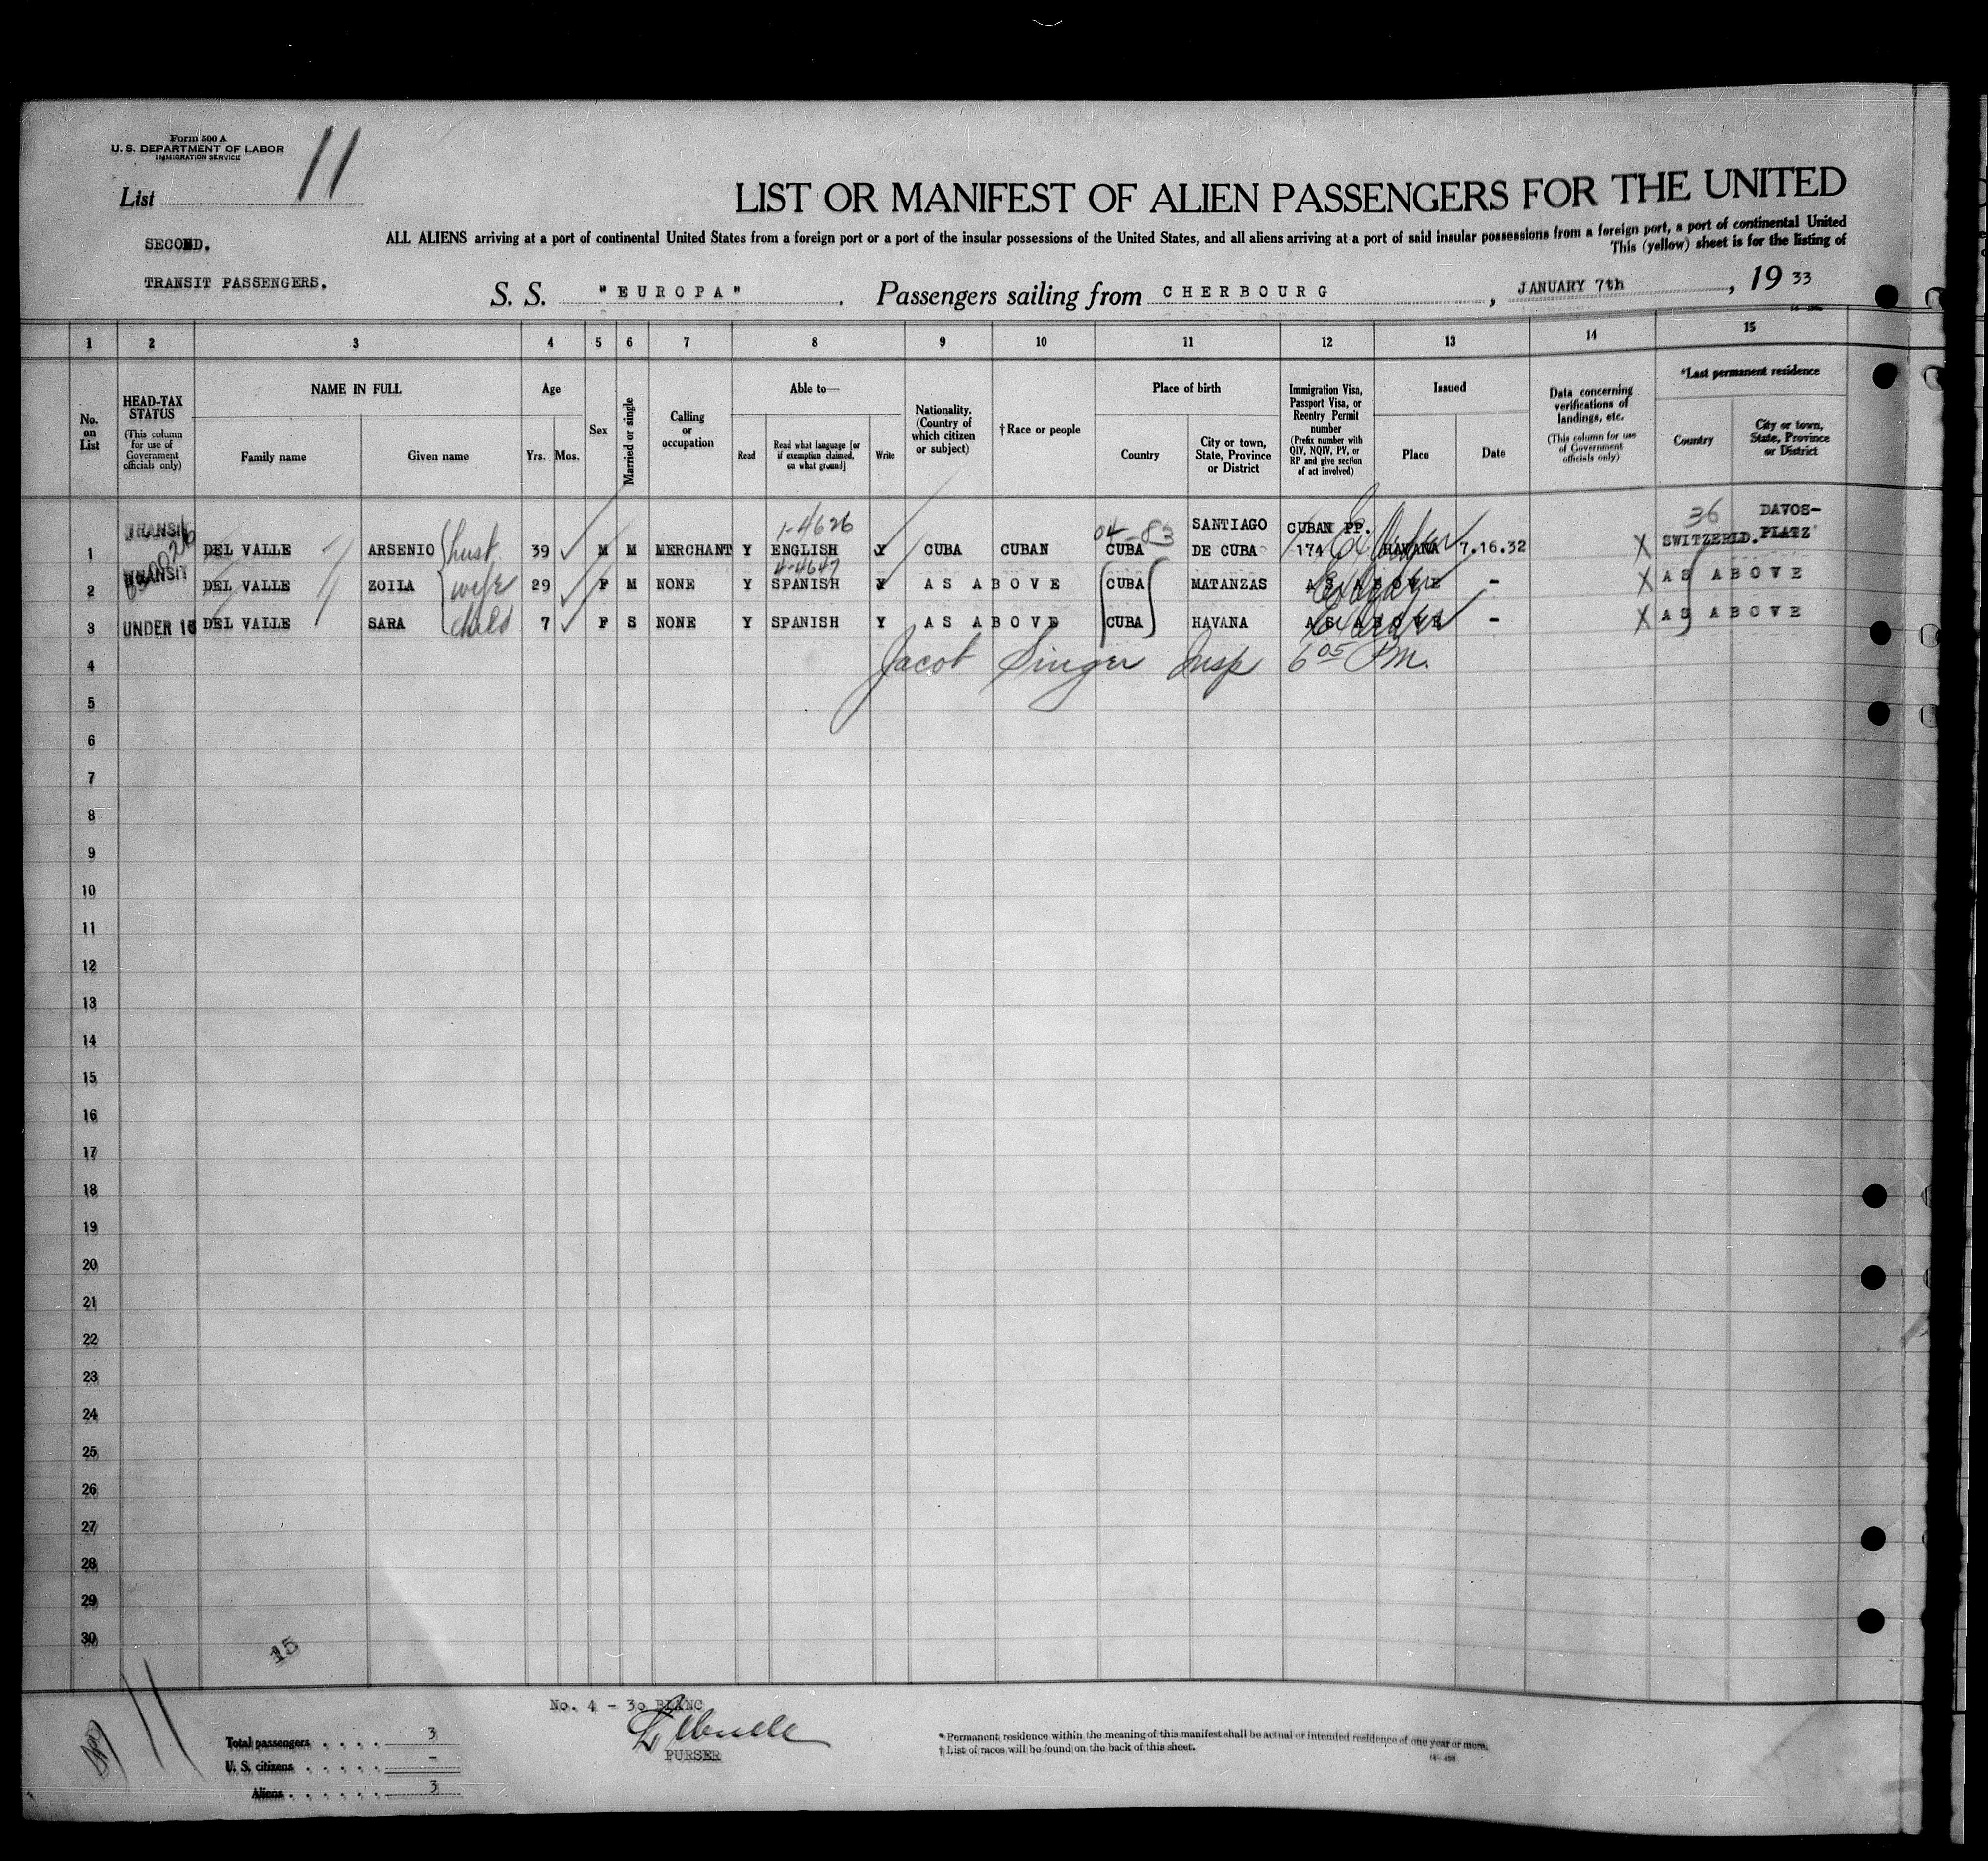 Form 500 A
U. S. DEPARTMENT OF LABOR
IMMIGRATION SERVICE
List 11
LIST OR MANIFEST OF ALIEN PASSENGERS FOR THE UNITED
SECOND.
ALL ALIENS arriving at a port of continental United States from a foreign port or a port of the insular possessions of the United States, and all aliens arriving at a port of said insular possessions from a foreign port, a port of continental United
This (yellow) sheet is for the listing of
TRANSIT PASSENGERS.
S. S. "EUROPA". Passengers sailing from CHERBOURG, JANUARY 7th, 19 33
1 2 3 4 5 6 7 8 9 10 11 12 13 14 15
No. on List
HEAD-TAX STATUS (This column for use of Government officials only)
NAME IN FULL
Family name Given name
Age
Yrs. Mos.
Sex
Married or single
Calling or occupation
Able to—
Read Read what language [or if exemption claimed, on what ground] Write
Nationality. (Country of which citizen or subject)
†Race or people
Place of birth
Country City or town, State, Province or District
Immigration Visa, Passport Visa, or Reentry Permit number (Prefix number with QIV, NQIV, PV, or RP and give section of act involved)
Issued
Place Date
Data concerning verifications of landings, etc. (This column for use of Government officials only)
*Last permanent residence
Country City or town, State, Province or District
1-4626 04-83 SANTIAGO CUBAN PP. 36 DAVOS-
1 TRANSIT DEL VALLE ARSENIO husb. 39 M M MERCHANT Y ENGLISH Y CUBA CUBAN CUBA DE CUBA 174 HAVANA 7.16.32 X SWITZERLD. PLATZ
4-4647
2 TRANSIT DEL VALLE ZOILA wife 29 F M NONE Y SPANISH Y AS ABOVE CUBA MATANZAS AS ABOVE - X AS ABOVE
3 UNDER 16 DEL VALLE SARA child 7 F S NONE Y SPANISH Y AS ABOVE CUBA HAVANA AS ABOVE - X AS ABOVE
4 Jacob Singer Insp 6 05 P.M.
5
6
7
8
9
10
11
12
13
14
15
16
17
18
19
20
21
22
23
24
25
26
27
28
29
30
15
11
No. 4 - 30 BLANC
PURSER
Total passengers . . . . 3
U. S. citizens . . . . . -
Aliens . . . . . . 3
* Permanent residence within the meaning of this manifest shall be actual or intended residence of one year or more.
† List of races will be found on the back of this sheet.